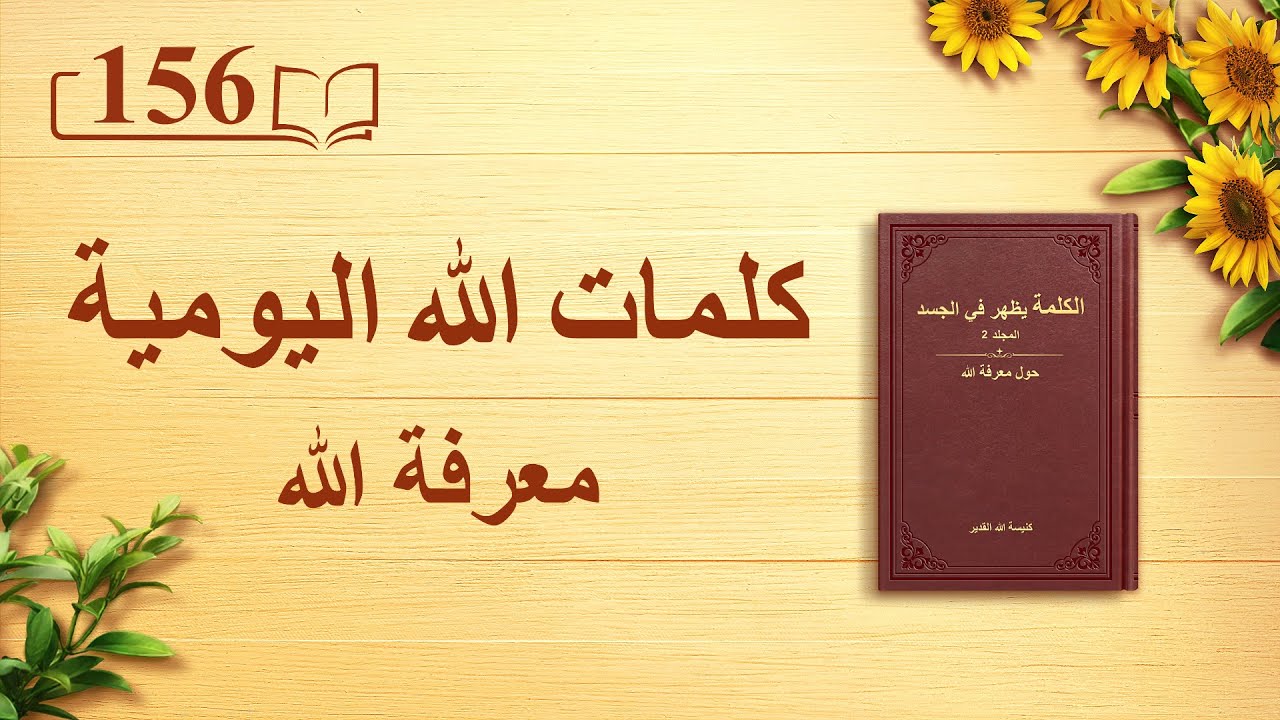 156
كلمات الله اليومية
معرفة الله
الكلمة يظهر في الجسد
المجلد 2
حول معرفة الله
كنيسة الله القدير